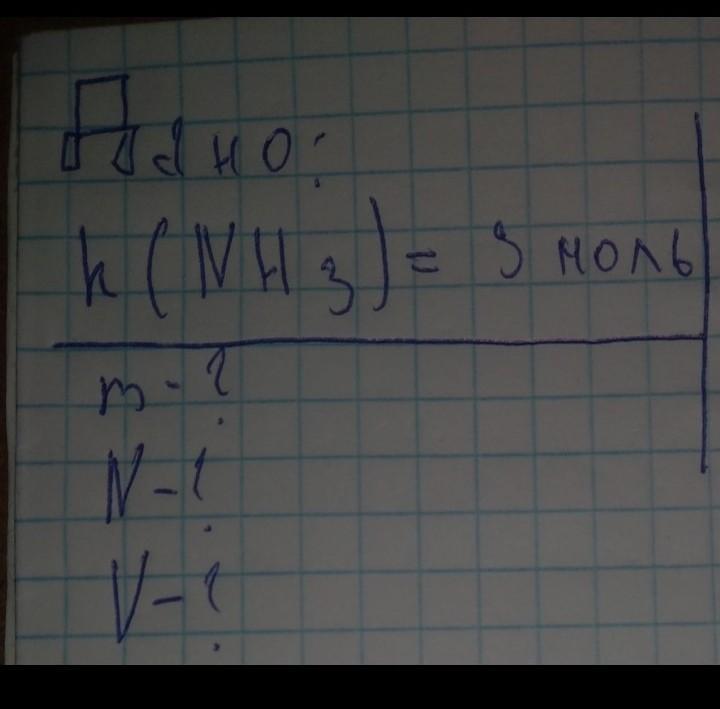 Дdно:
n(NH3) = 5 моль
m-?
N-?
V-?